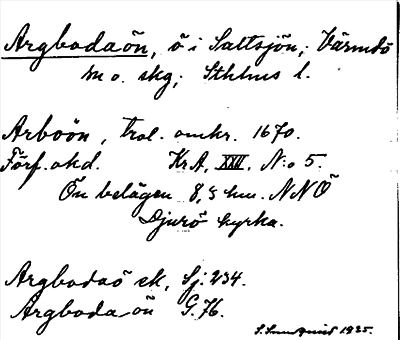 Argbodaön, ö i Saltsjön, Värmdö
m o. skg; Sthlms l.
Arboön, trol. omkr. 1670.
Förf. okd. KrA, XXII, N:o 5.
Ön belägen 8,5 km. NNÖ
Djurö kyrka.
Argbodaö sk, Sj. 234.
Argboda ön G. 76.
1925.